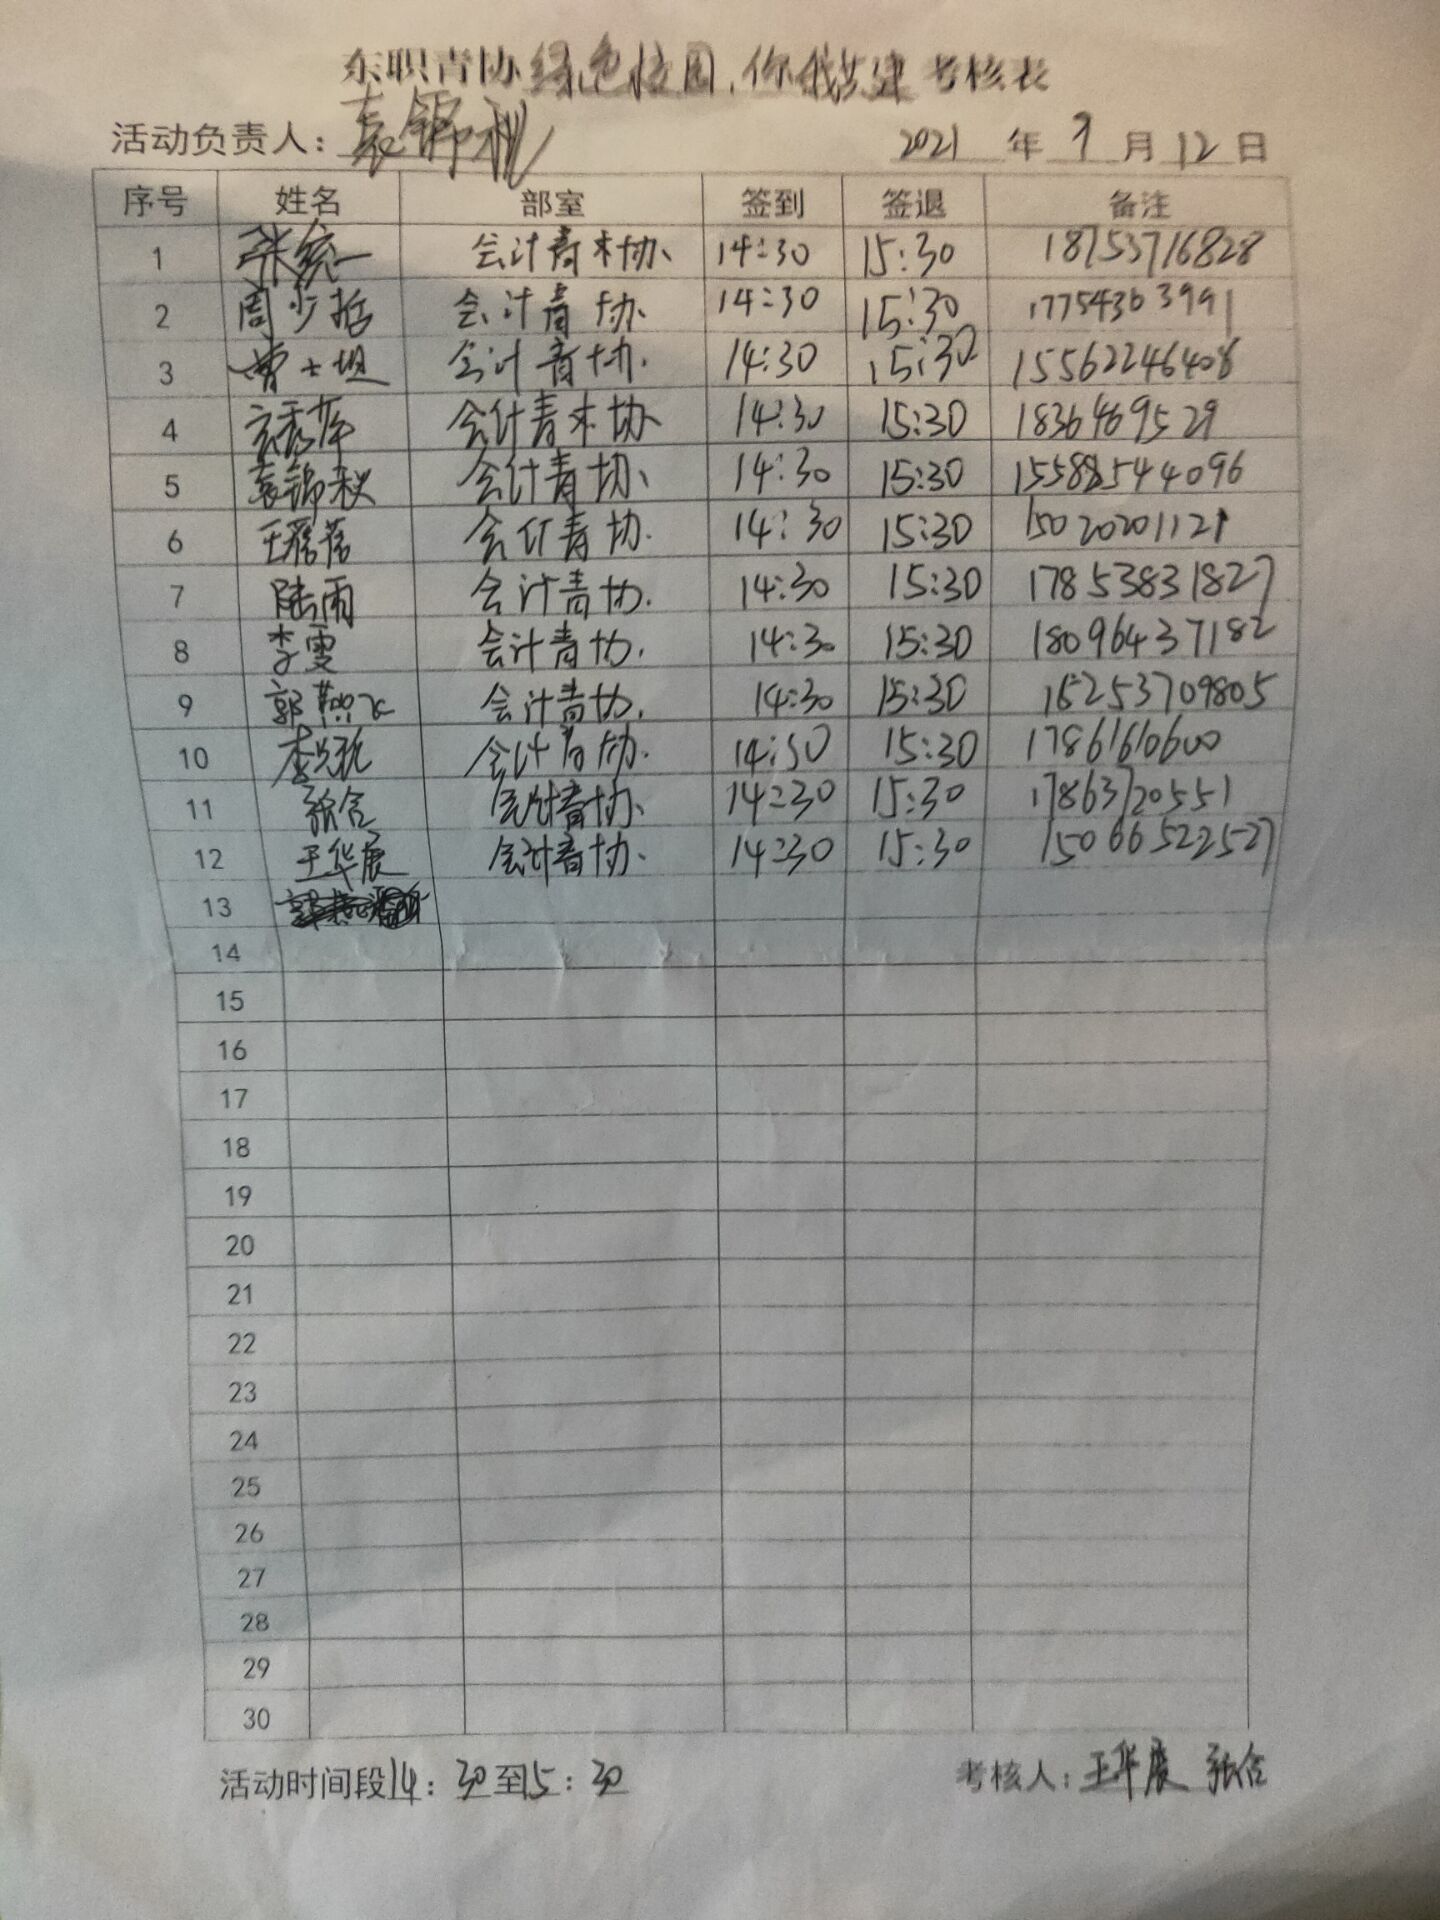 东职青协绿色校园，你我共建考核表
活动负责人：袁锦秋 2021年9月12日
序号 姓名 部室 签到 签退 备注
1 张统一 会计青协、 14:30 15:30 18753716828
2 周少哲 会计青协、 14:30 15:30 17754363991
3 曹士坦 会计青协. 14:30 15:30 15562246408
4 会计青协、 14:30 15:30 18364469529
5 袁锦秋 会计青协、 14:30 15:30 15588544096
6 会计青协. 14:30 15:30 15020201121
7 陆雨 会计青协. 14:30 15:30 17853831827
8 李雯 会计青协. 14:30 15:30 18096437182
9 会计青协. 14:30 15:30 15253709805
10 会计青协. 14:30 15:30 17861610600
11 张合 会计青协、 14:30 15:30 17863720551
12 王华展 会计青协、 14:30 15:30 15066522527
13
14
15
16
17
18
19
20
21
22
23
24
25
26
27
28
29
30
活动时间段14：30至15：30 考核人：王华展 张合